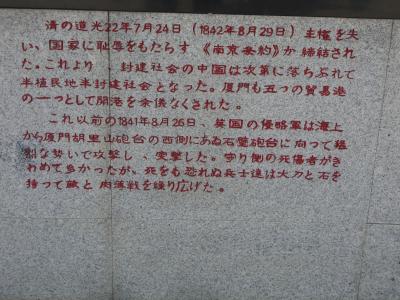 清の道光22年7月24日（1842年8月29日）主権を失
い、国家に恥辱をもたらす《南京条約》が締結され
た。これより 封建社会の中国は次第に落ちぶれて
半植民地半封建社会となった。厦門も五つの貿易港
の一つとして開港を余儀なくされた。
これ以前の1841年8月26日、英国の侵略軍は海上
から厦門胡里山砲台の西側にある石壁砲台に向って猛
烈な勢いで攻撃し、突撃した。守り側の死傷者がき
わめて多かったが、死をも恐れぬ兵士達は大刀と石を
持って敵と肉薄戦を繰り広げた。